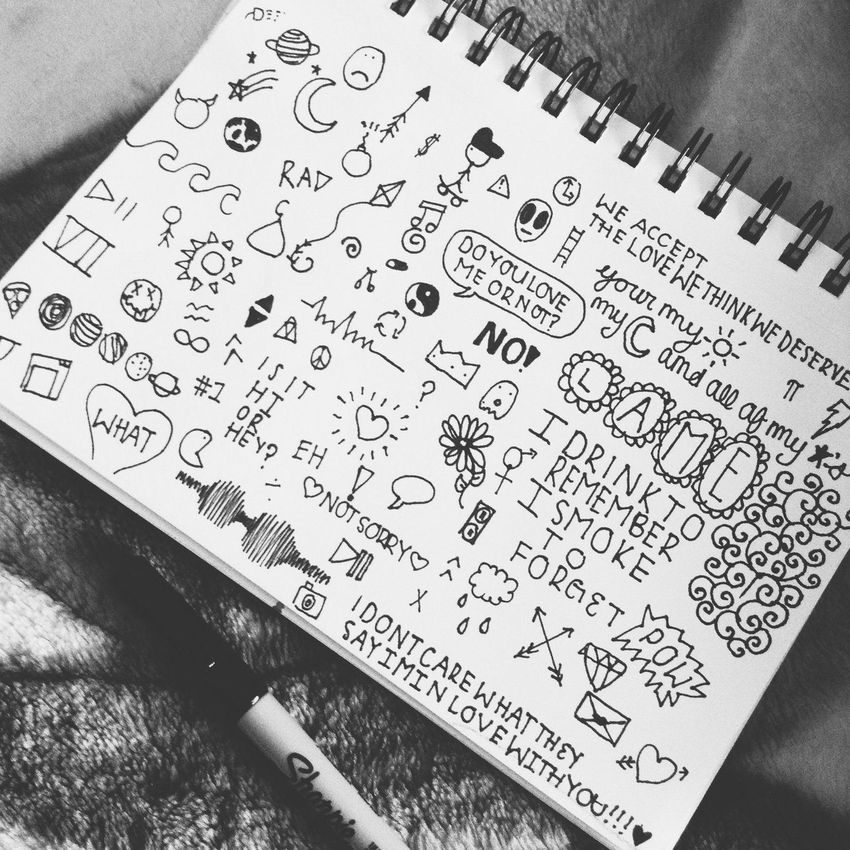 RAD
VII
WE ACCEPT
THE LOVE WE THINK WE DESERVE
your my
my and all of my *'s
DO YOU LOVE
ME OR NOT?
NO!
π
$
?
LAME
#1
IS IT
HI
OR
HEY?
EH
!
WHAT
I DRINK TO
REMEMBER
I SMOKE
TO
FORGET
NOT SORRY
X
POW
I DONT CARE WHAT THEY
SAY IM IN LOVE WITH YOU!!!!
Sharpie